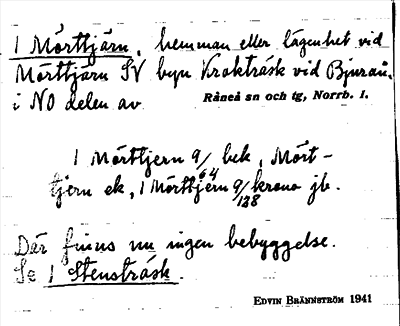 1 Mörttjärn, hemman eller lägenhet vid
Mörttjärn SV byn Krokträsk vid Bjurån.
i NO delen av Råneå sn och tg, Norrb. l.
1 Mörttjern 9/64 bek, Mört-
tjern ek, 1 Mörttjern 9/128 krono jb.
Där finns nu ingen bebyggelse.
Se 1 Stensträsk.
EDVIN BRÄNNSTRÖM 1941